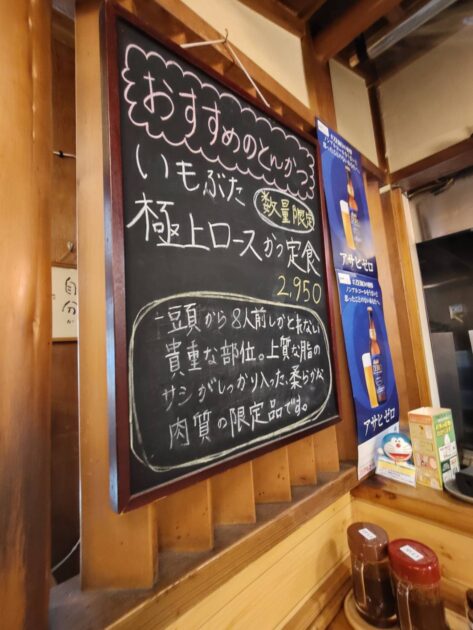 おすすめのとんかつ
いもぶた
数量限定
極上ロースかつ定食
2,950
一豆頭から8人前しかとれない
貴重な部位。上質な脂の
サシがしっかり入った、柔らかな
肉質の限定品です。
自分
アサヒゼロ
アサヒゼロ